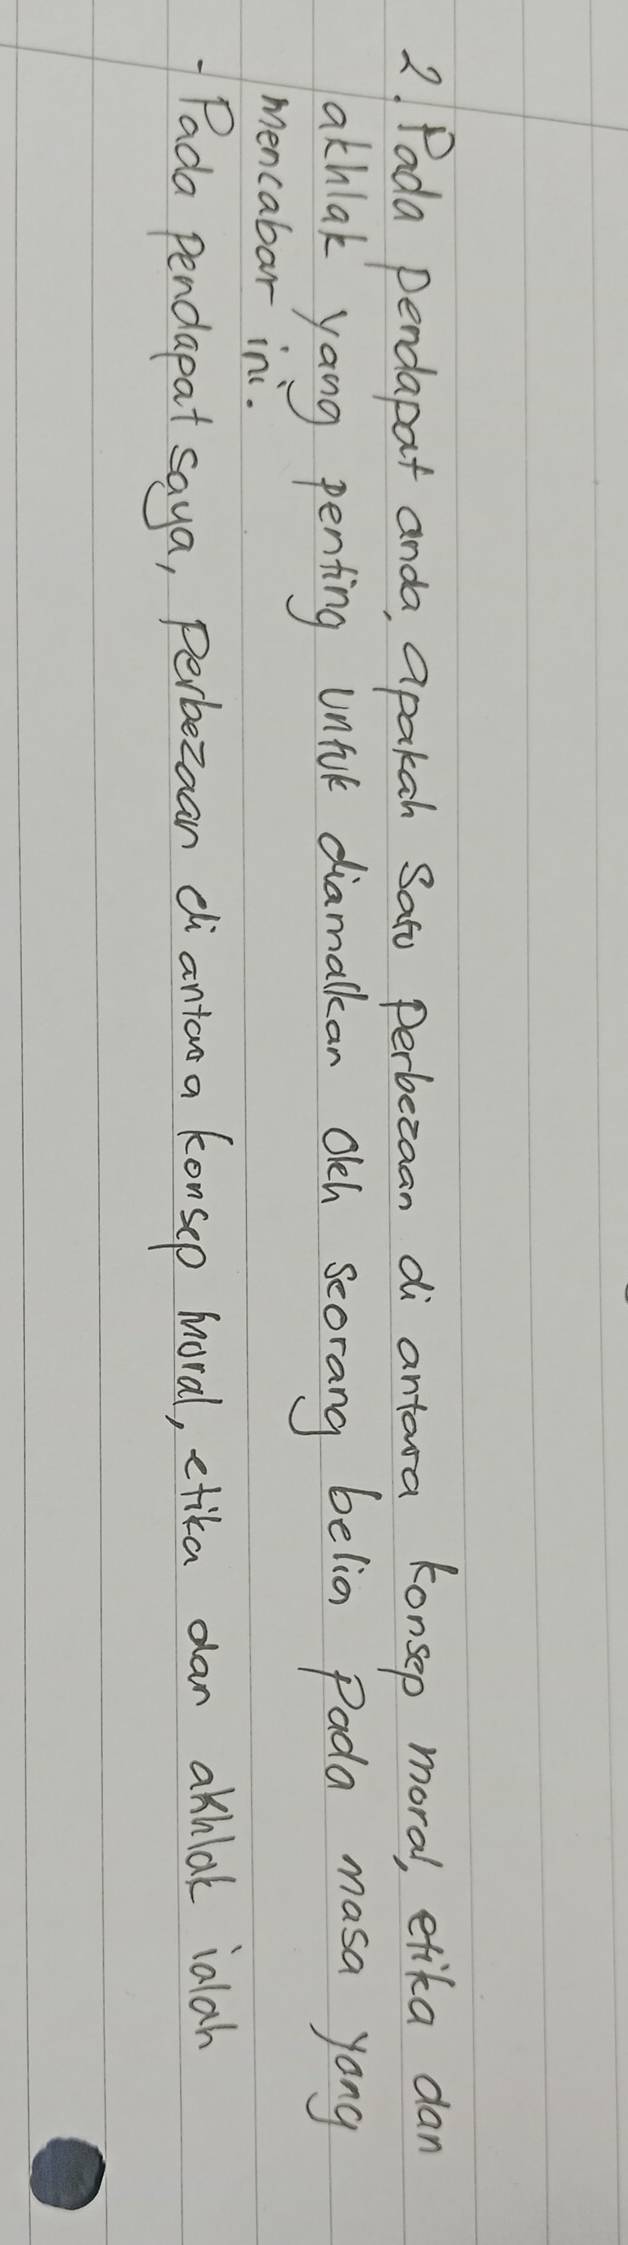 2. Pada pendapat anda, apakah satu perbezaan di antara konsep moral, etika dan
akhlak yang penting untuk diamalkan oleh seorang belia pada masa yang
mencabar ini.
- Pada pendapat saya, perbezaan di antara konsep moral, etika dan akhlak ialah